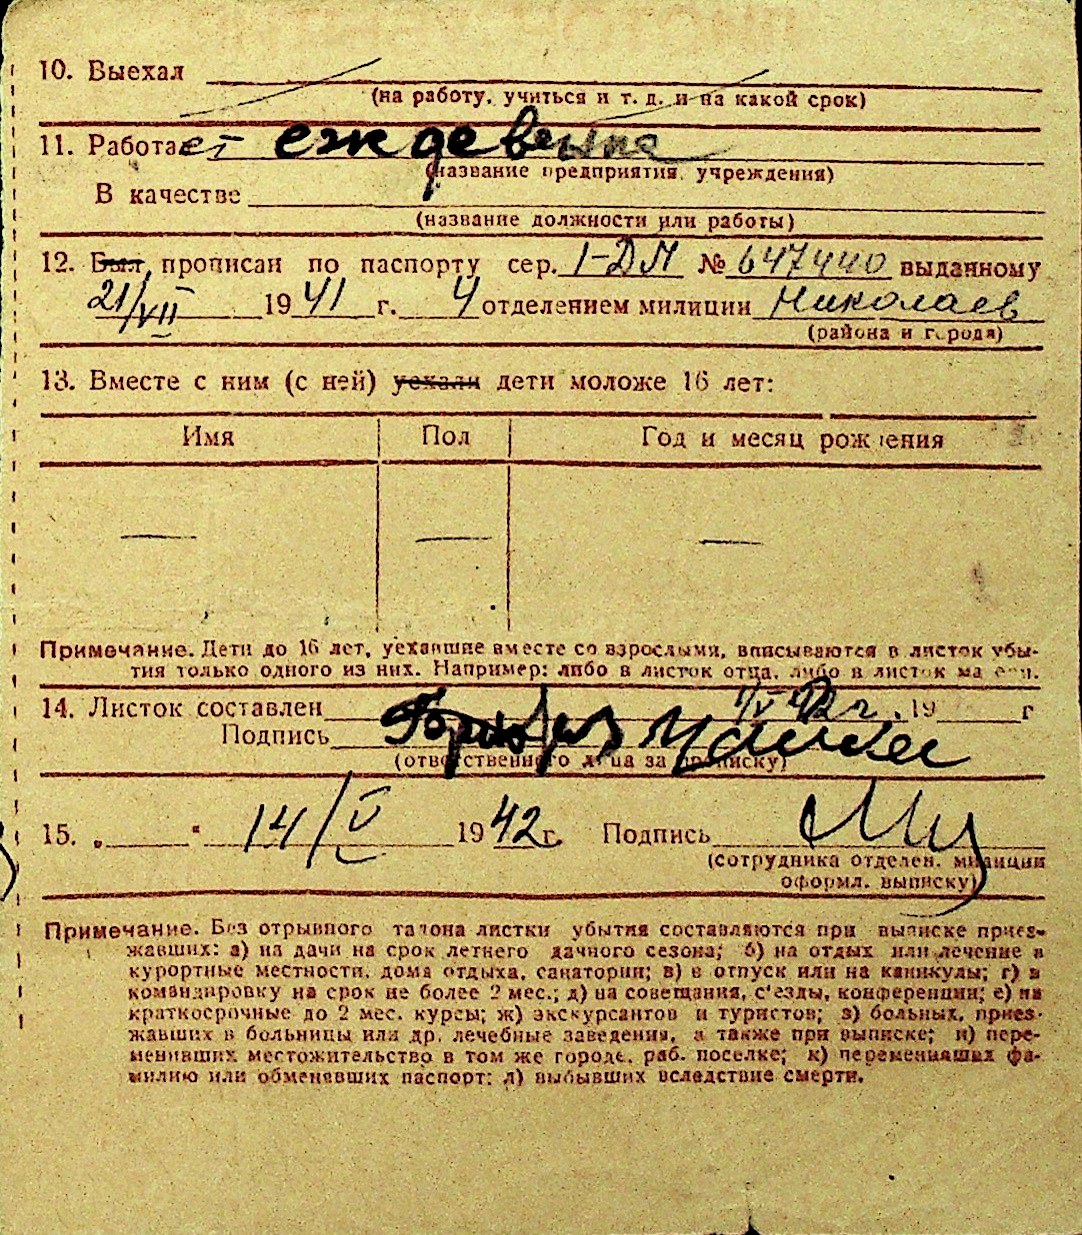 10. Выехал
(на работу, учиться и т. д. и на какой срок)
11. Работает
(название предприятия, учреждения)
В качестве
(название должности или работы)
12. Был, прописан по паспорту сер. 1-ДМ № 647440 выданному
21/VII 1941 г. 4 отделением милиции Николаев
(района и города)
13. Вместе с ним (с ней) уехали дети моложе 16 лет:
Имя Пол Год и месяц рождения
— — —
Примечание. Дети до 16 лет, уехавшие вместе со взрослыми, вписываются в листок убы-
тия только одного из них. Например: либо в листок отца, либо в листок матери.
14. Листок составлен 19 г
Подпись
(ответственного лица за прописку)
15. „ “ 14/V 1942 г. Подпись
(сотрудника отделен. милиции
оформл. выписку)
Примечание. Без отрывного талона листки убытия составляются при выписке приез-
жавших: а) на дачи на срок летнего дачного сезона; б) на отдых или лечение в
курортные местности, дома отдыха, санатории; в) в отпуск или на каникулы; г) в
командировку на срок не более 2 мес.; д) на совещания, с'езды, конференции; е) на
краткосрочные до 2 мес. курсы; ж) экскурсантов и туристов; з) больных, приез-
жавших в больницы или др. лечебные заведения, а также при выписке; и) пере-
менивших местожительство в том же городе, раб. поселке; к) переменивших фа-
милию или обменявших паспорт; л) выбывших вследствие смерти.